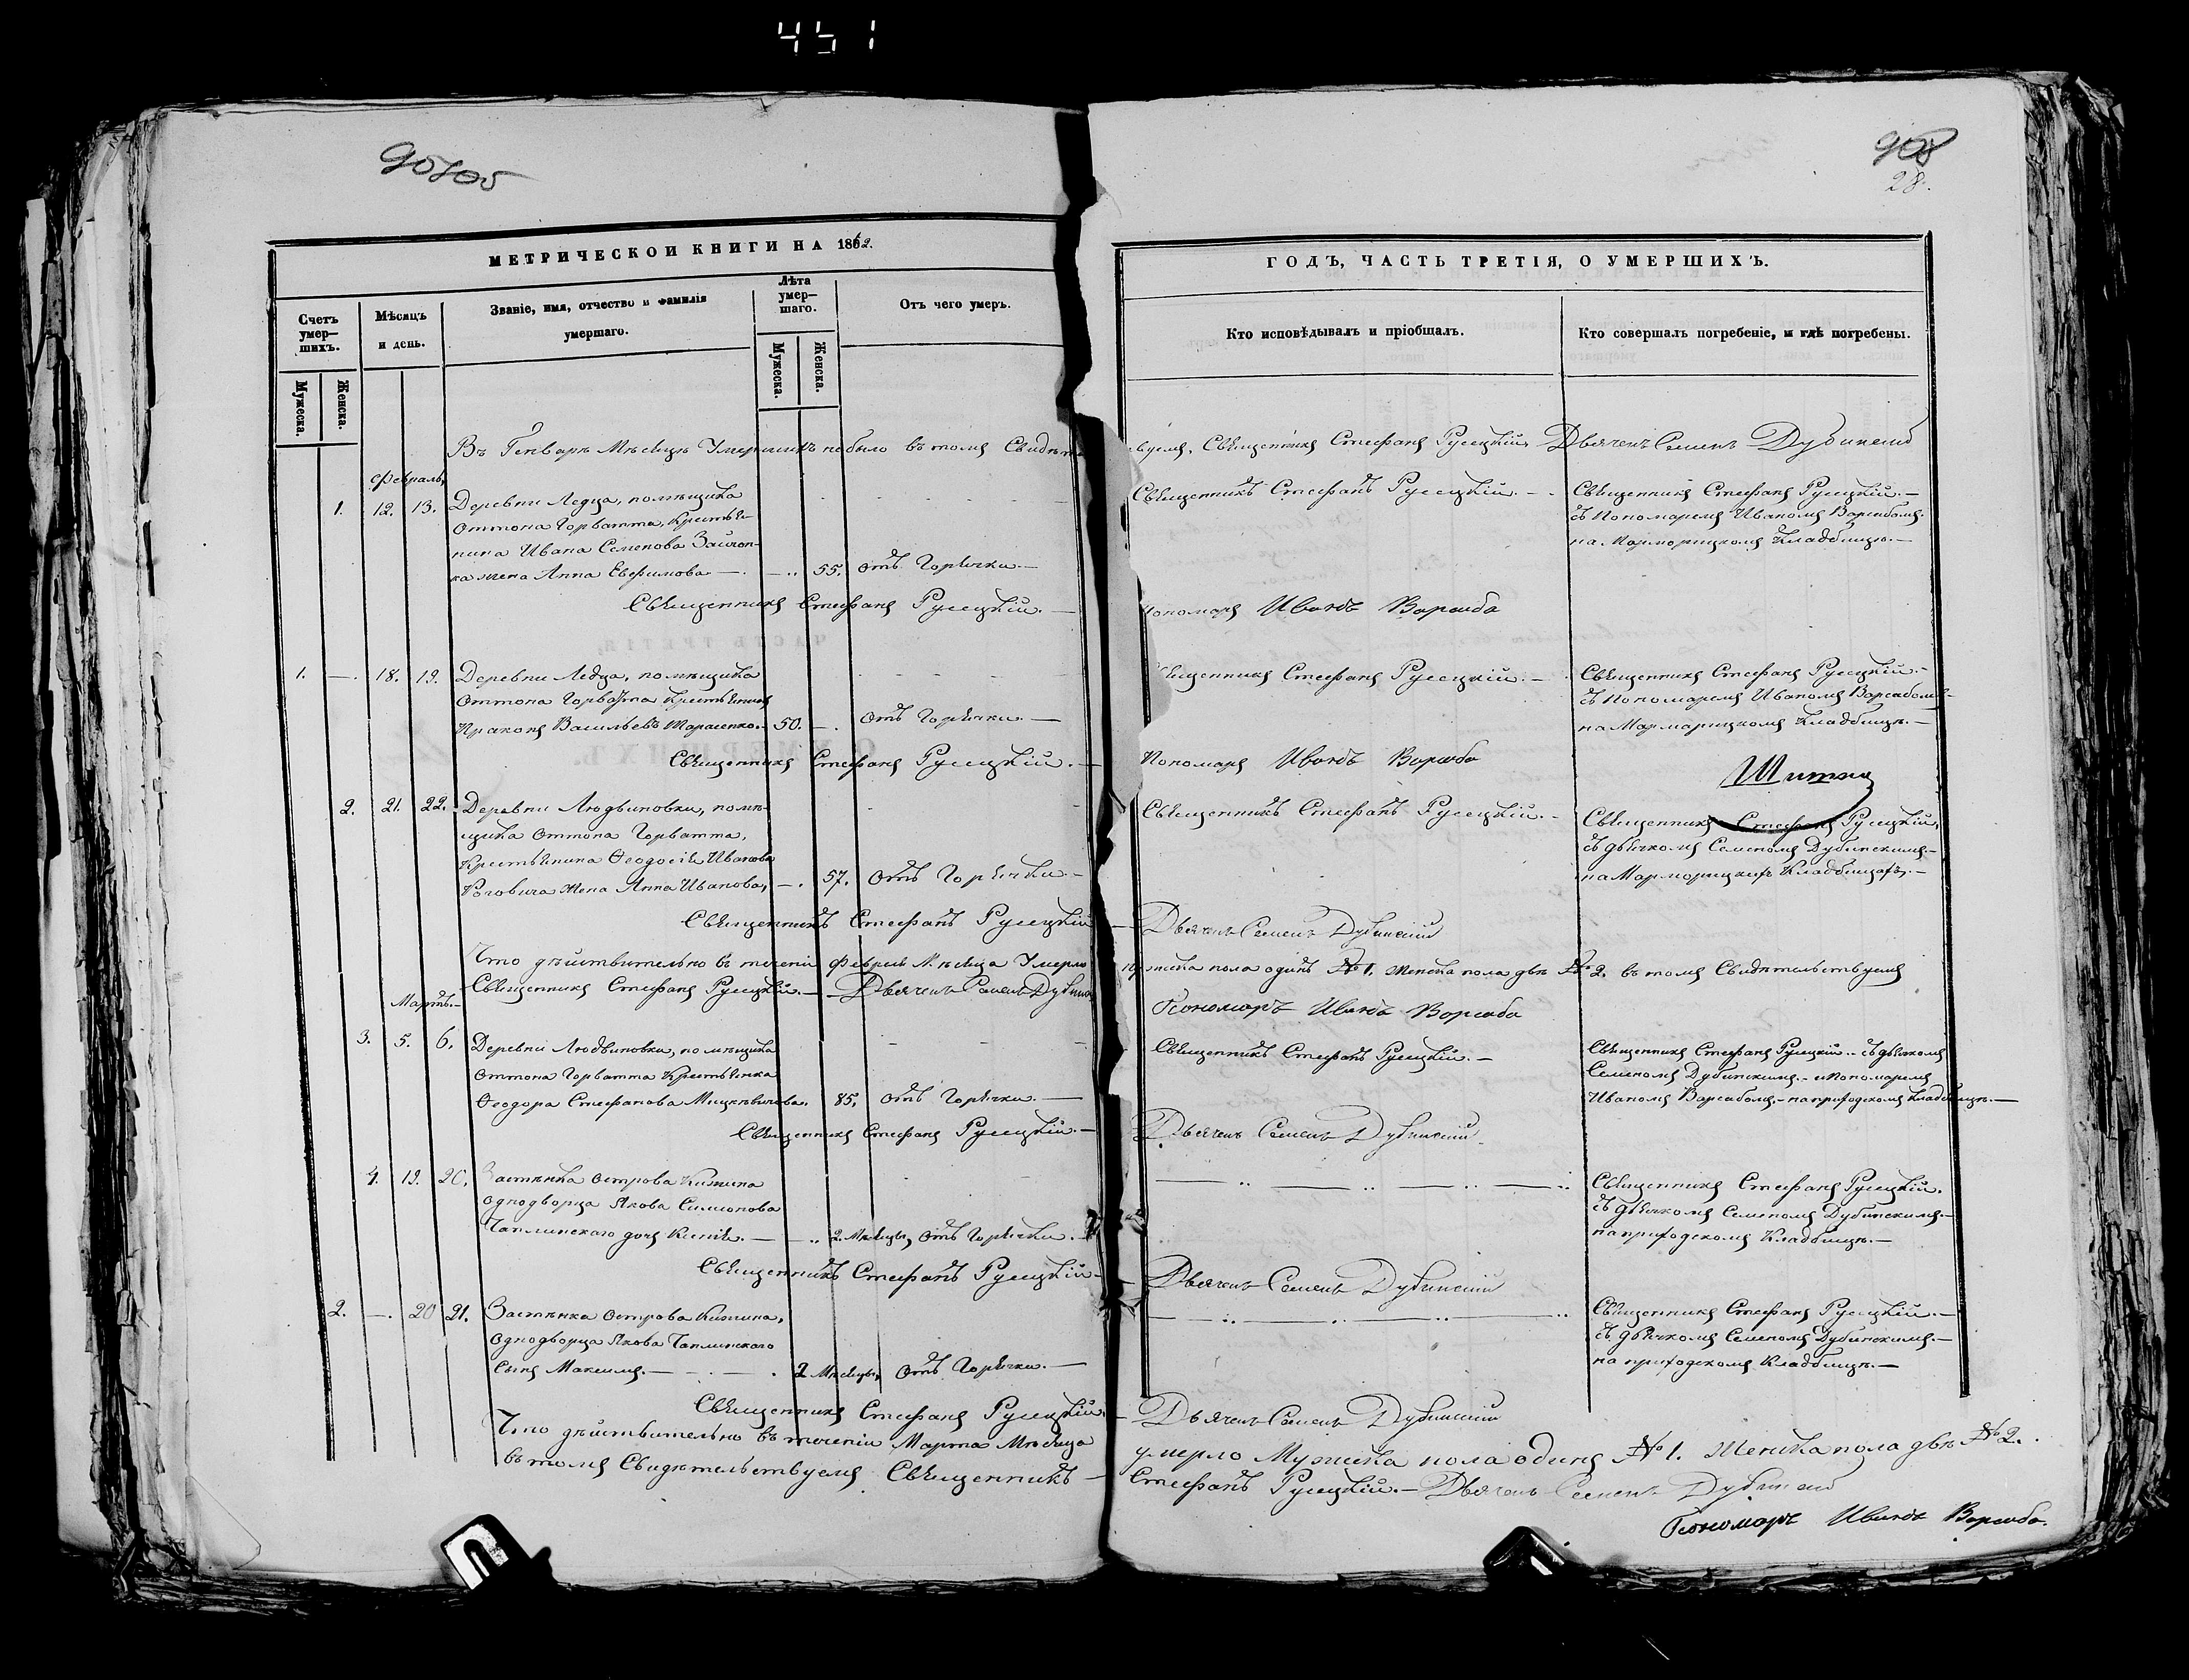 451
90705
908
28.
МЕТРИЧЕСКОЙ КНИГИ НА 1862.
Счетъ умер-шихъ.
Мѣсяцъ и день.
Званіе, имя, отчество и фамилія умершаго.
Лѣта умер-шаго.
Отъ чего умеръ.
Мужеска.
Женска.
Мужеска.
Женска.
Въ Генварѣ Мѣсяцѣ Умершихъ небыло въ томъ
Февраль,
1. 12. 13. Деревни Ледца, помѣщика
Оттона Горватта, Крестья-
нина Ивана Семенова
жена Анна Евфимова — 55. отъ Горячки. —
Священникъ Стефанъ Русецкій. —
1. — 18. 19. Деревни Ледца, помѣщика
Оттона Горватта Крестьянинъ
Васильевъ Тарасенко. 50. — отъ Горячки. —
Священникъ Стефанъ Русецкій. —
2. 21. 22. Деревни Людвиновки, помѣ-
щика Оттона Горватта,
Крестьянина Ѳеодосія Иванова
жена Анна Иванова, — 57. отъ Горячки. —
Священникъ Стефанъ Русецкій
Что дѣйствительно въ теченіи Февраля Мѣсяца Умерло
Священникъ Стефанъ Русецкій. — Дьячекъ Семенъ
Мартъ. —
3. 5. 6. Деревни Людвиновки, помѣщика
Оттона Горватта Крестьянка
Ѳеодора Стефанова 85. отъ Горячки. —
Священникъ Стефанъ Русецкій. —
4. 19. 20. Застѣнка Острова
Однодворца Якова Симонова
Чаплинскаго дочь — 2. Мѣсяцы, отъ Горячки. —
Священникъ Стефанъ Русецкій —
2. — 20 21. Застѣнка Острова
Однодворца Якова Чаплинскаго
Сынъ Максимъ. — 2 Мѣсяцы, отъ Горячки. —
Священникъ Стефанъ Русецкій.
Что дѣйствительно въ теченіи Марта Мѣсяца
въ томъ Свидѣтельствуемъ Священникъ —
ГОДЪ, ЧАСТЬ ТРЕТІЯ, О УМЕРШИХЪ.
Кто исповѣдывалъ и пріобщалъ.
Кто совершалъ погребеніе, и гдѣ погребены.
Священникъ Стефанъ Русецкій, Дьячекъ Семенъ Дубинскій
Священникъ Стефанъ Русецкій. —
Священникъ Стефанъ Русецкій. —
съ Пономаремъ Иваномъ Варсабомъ.
на Кладбищѣ. —
Пономарь Иванъ Варсаба
Священникъ Стефанъ Русецкій. —
Священникъ Стефанъ Русецкій. —
съ Пономаремъ Иваномъ Варсабомъ —
на Кладбищѣ. —
Пономарь Иванъ Варсаба
Священникъ Стефанъ Русецкій. —
Священникъ Стефанъ Русецкій,
съ дьячкомъ Семеномъ Дубинскимъ —
на Кладбищахъ, —
Дьячекъ Семенъ Дубинскій
пола одинъ № 1. женска пола двѣ № 2. въ томъ Свидѣтельствуемъ
Пономарь Иванъ Варсаба
Священникъ Стефанъ Русецкій. —
Священникъ Стефанъ Русецкій — съ дьячкомъ
Семеномъ Дубинскимъ — и Пономаремъ
Иваномъ Варсабомъ — на приходскомъ кладбищѣ. —
Дьячекъ Семенъ Дубинскій
Священникъ Стефанъ Русецкій.
съ дьячкомъ Семеномъ Дубинскимъ —
на приходскомъ Кладбищѣ. —
Дьячекъ Семенъ Дубинскій
Священникъ Стефанъ Русецкій. —
съ дьячкомъ Семеномъ Дубинскимъ. —
на приходскомъ Кладбищѣ. —
Дьячекъ Семенъ Дубинскій
умерло Мужеска пола одинъ № 1. Женска пола двѣ № 2.
Стефанъ Русецкій. — Дьячекъ Семенъ Дубинскій
Пономарь Иванъ Варсаба.